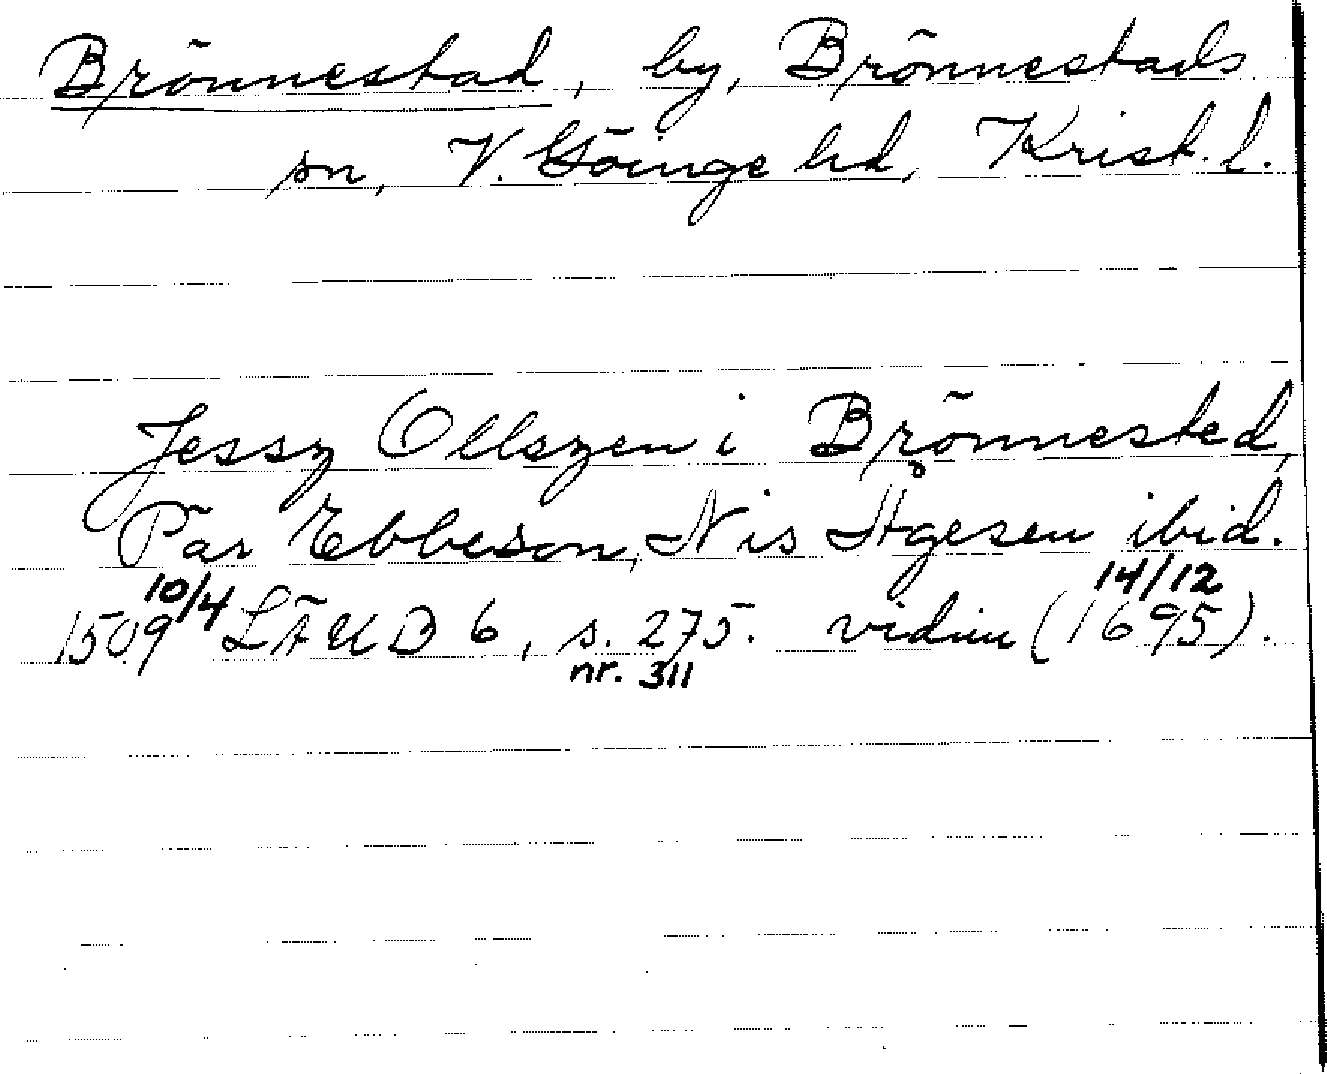 Brönnestad, by, Brönnestads
sn, V. Göinge hd, Krist. l.
Jessz Ollszen i Brönnested,
Pär Ebbeson, Nis Ågesen ibid.
10/4 14/12
1509 LÄUB 6, s. 275. vidim (1695).
nr. 311